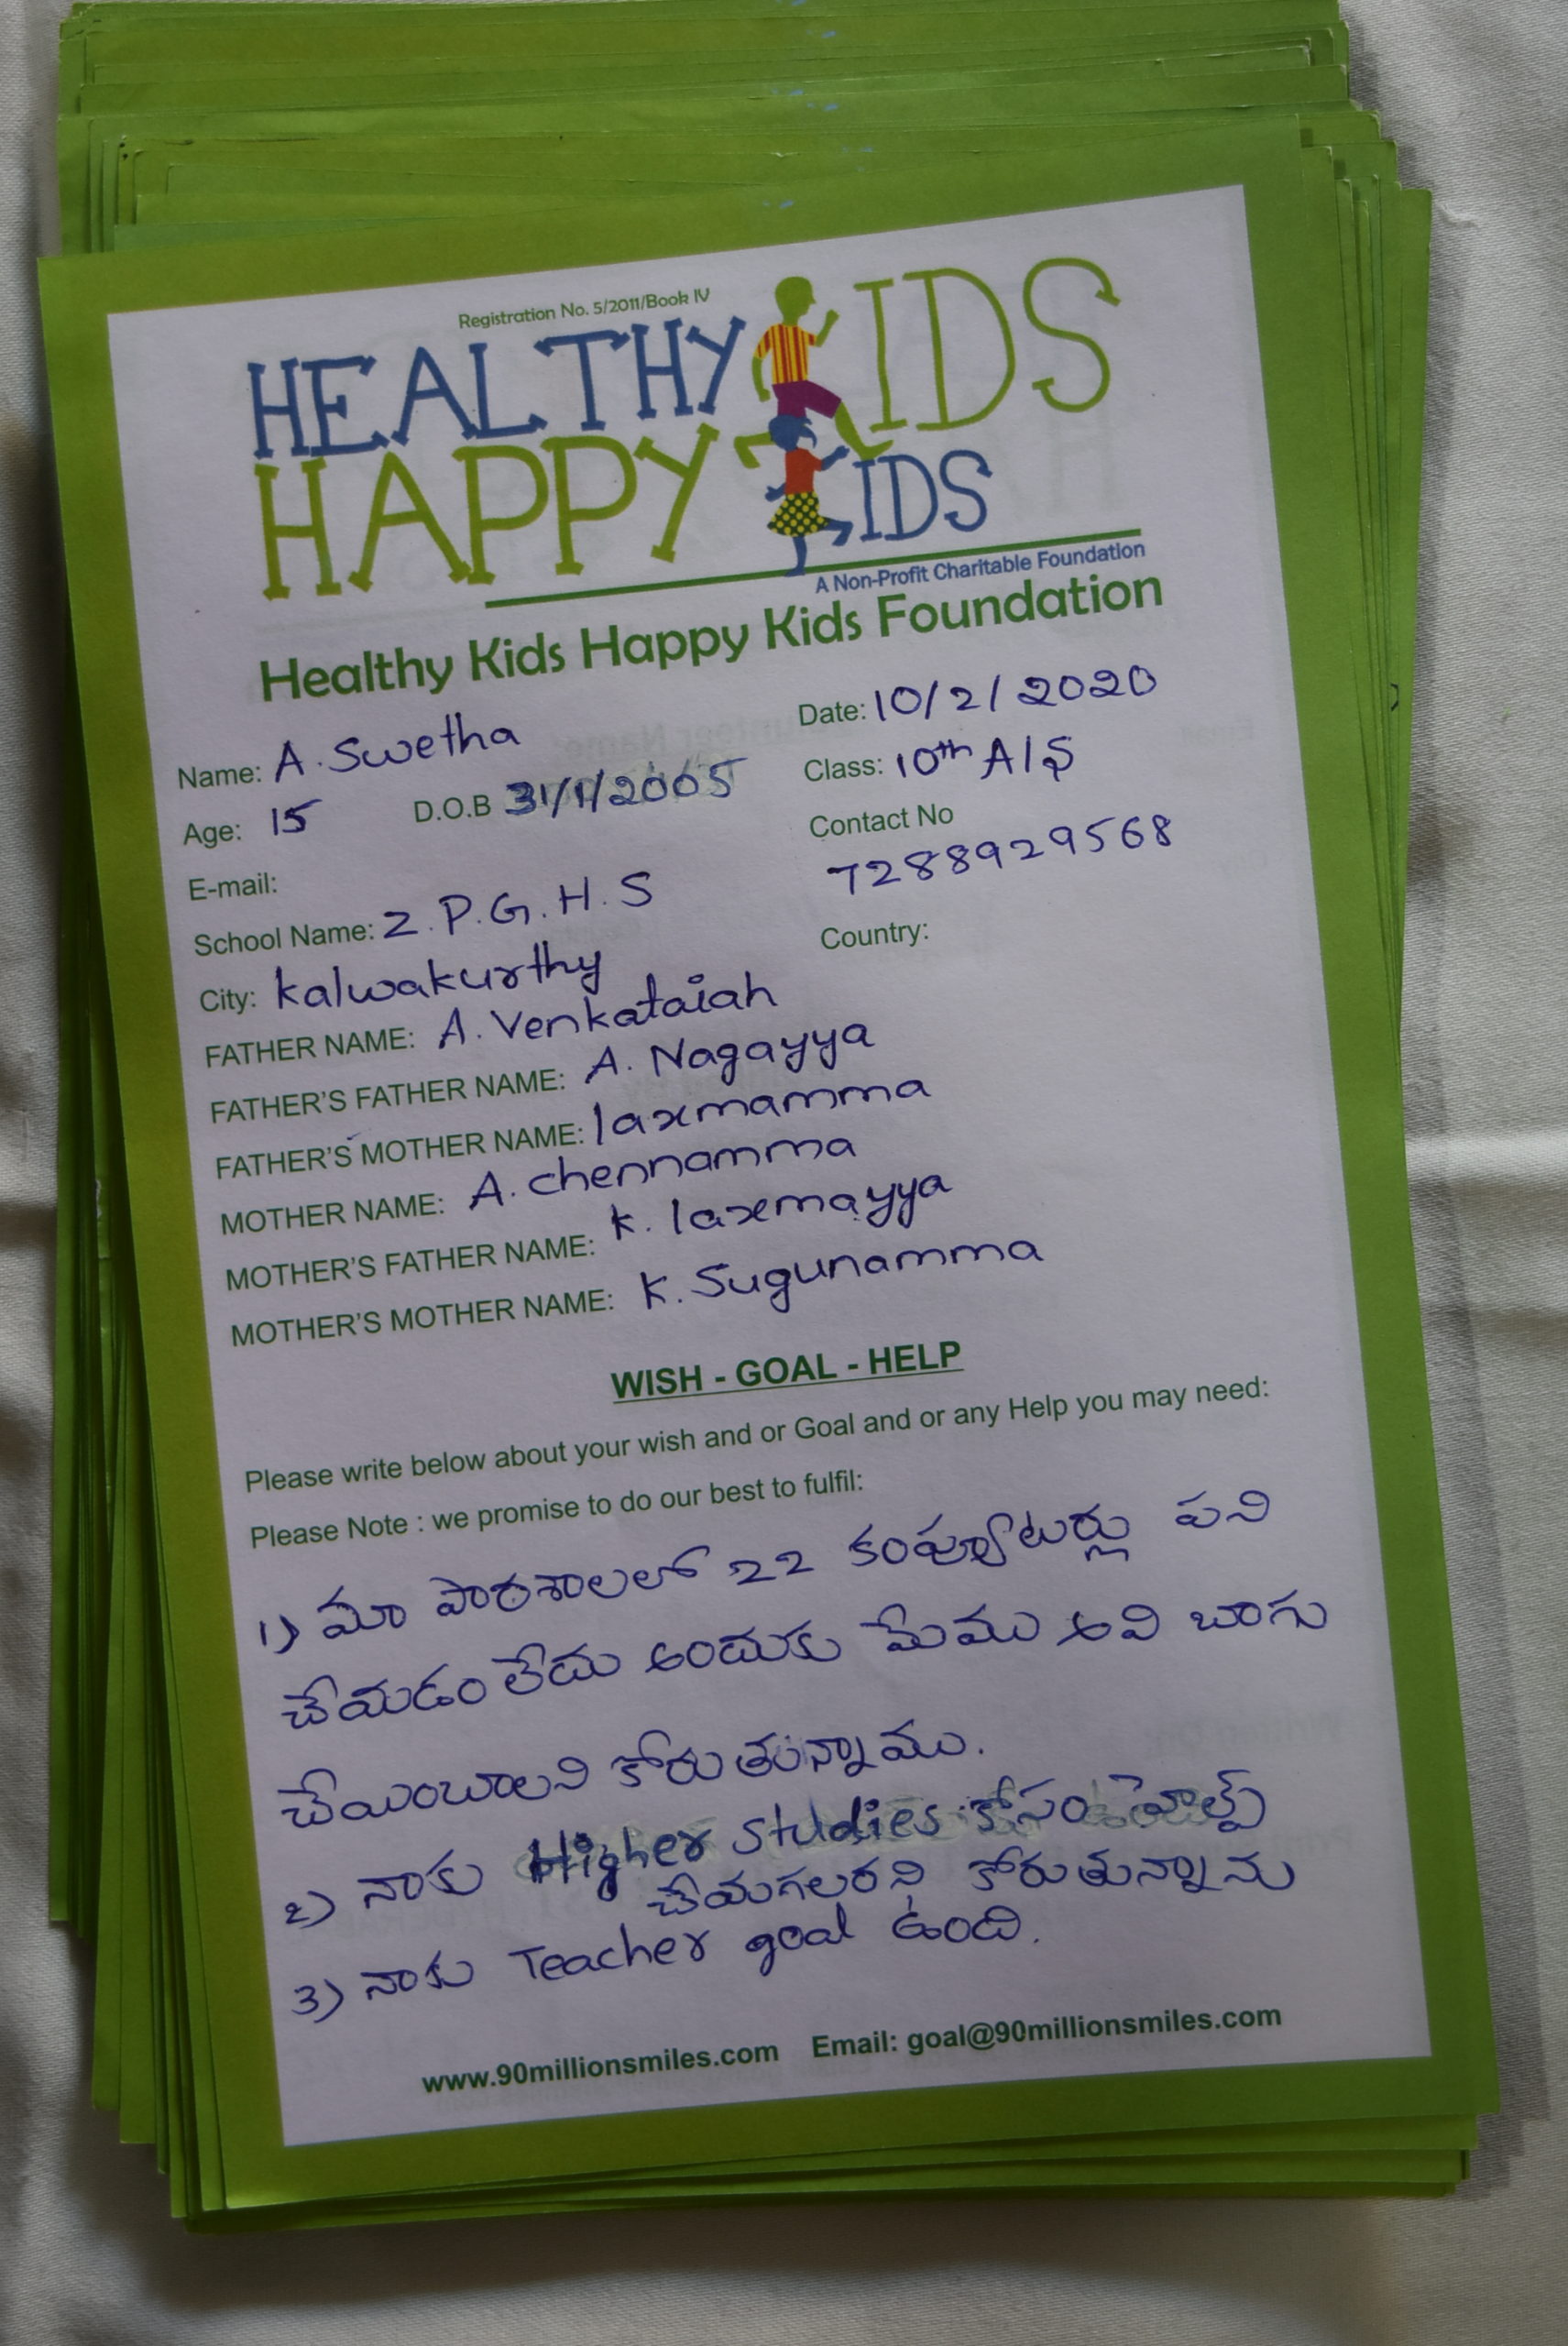 Registration No. 5/2011/Book IV
HEALTHY KIDS
HAPPY KIDS
A Non-Profit Charitable Foundation
Healthy Kids Happy Kids Foundation
Name: A. Swetha
Date: 10/2/2020
Age: 15 D.O.B 31/1/2005
Class: 10th A/S
E-mail:
Contact No
7288929568
School Name: Z.P.G.H.S
City: kalwakurthy
Country:
FATHER NAME: A. Venkataiah
FATHER'S FATHER NAME: A. Nagayya
FATHER'S MOTHER NAME: laxmamma
MOTHER NAME: A. chennamma
MOTHER'S FATHER NAME: K. laxmayya
MOTHER'S MOTHER NAME: K. Sugunamma
WISH - GOAL - HELP
Please write below about your wish and or Goal and or any Help you may need:
Please Note : we promise to do our best to fulfil:
1) మా పాఠశాలలో 22 కంప్యూటర్లు పని
చేయడం లేదు అందుకు మేము అవి బాగు
చేయించాలని కోరుతున్నాము.
2) నాకు Higher Studies కోసం హెల్ప్
చేయగలరని కోరుతున్నాను
3) నాకు Teacher goal ఉంది.
www.90millionsmiles.com Email: goal@90millionsmiles.com